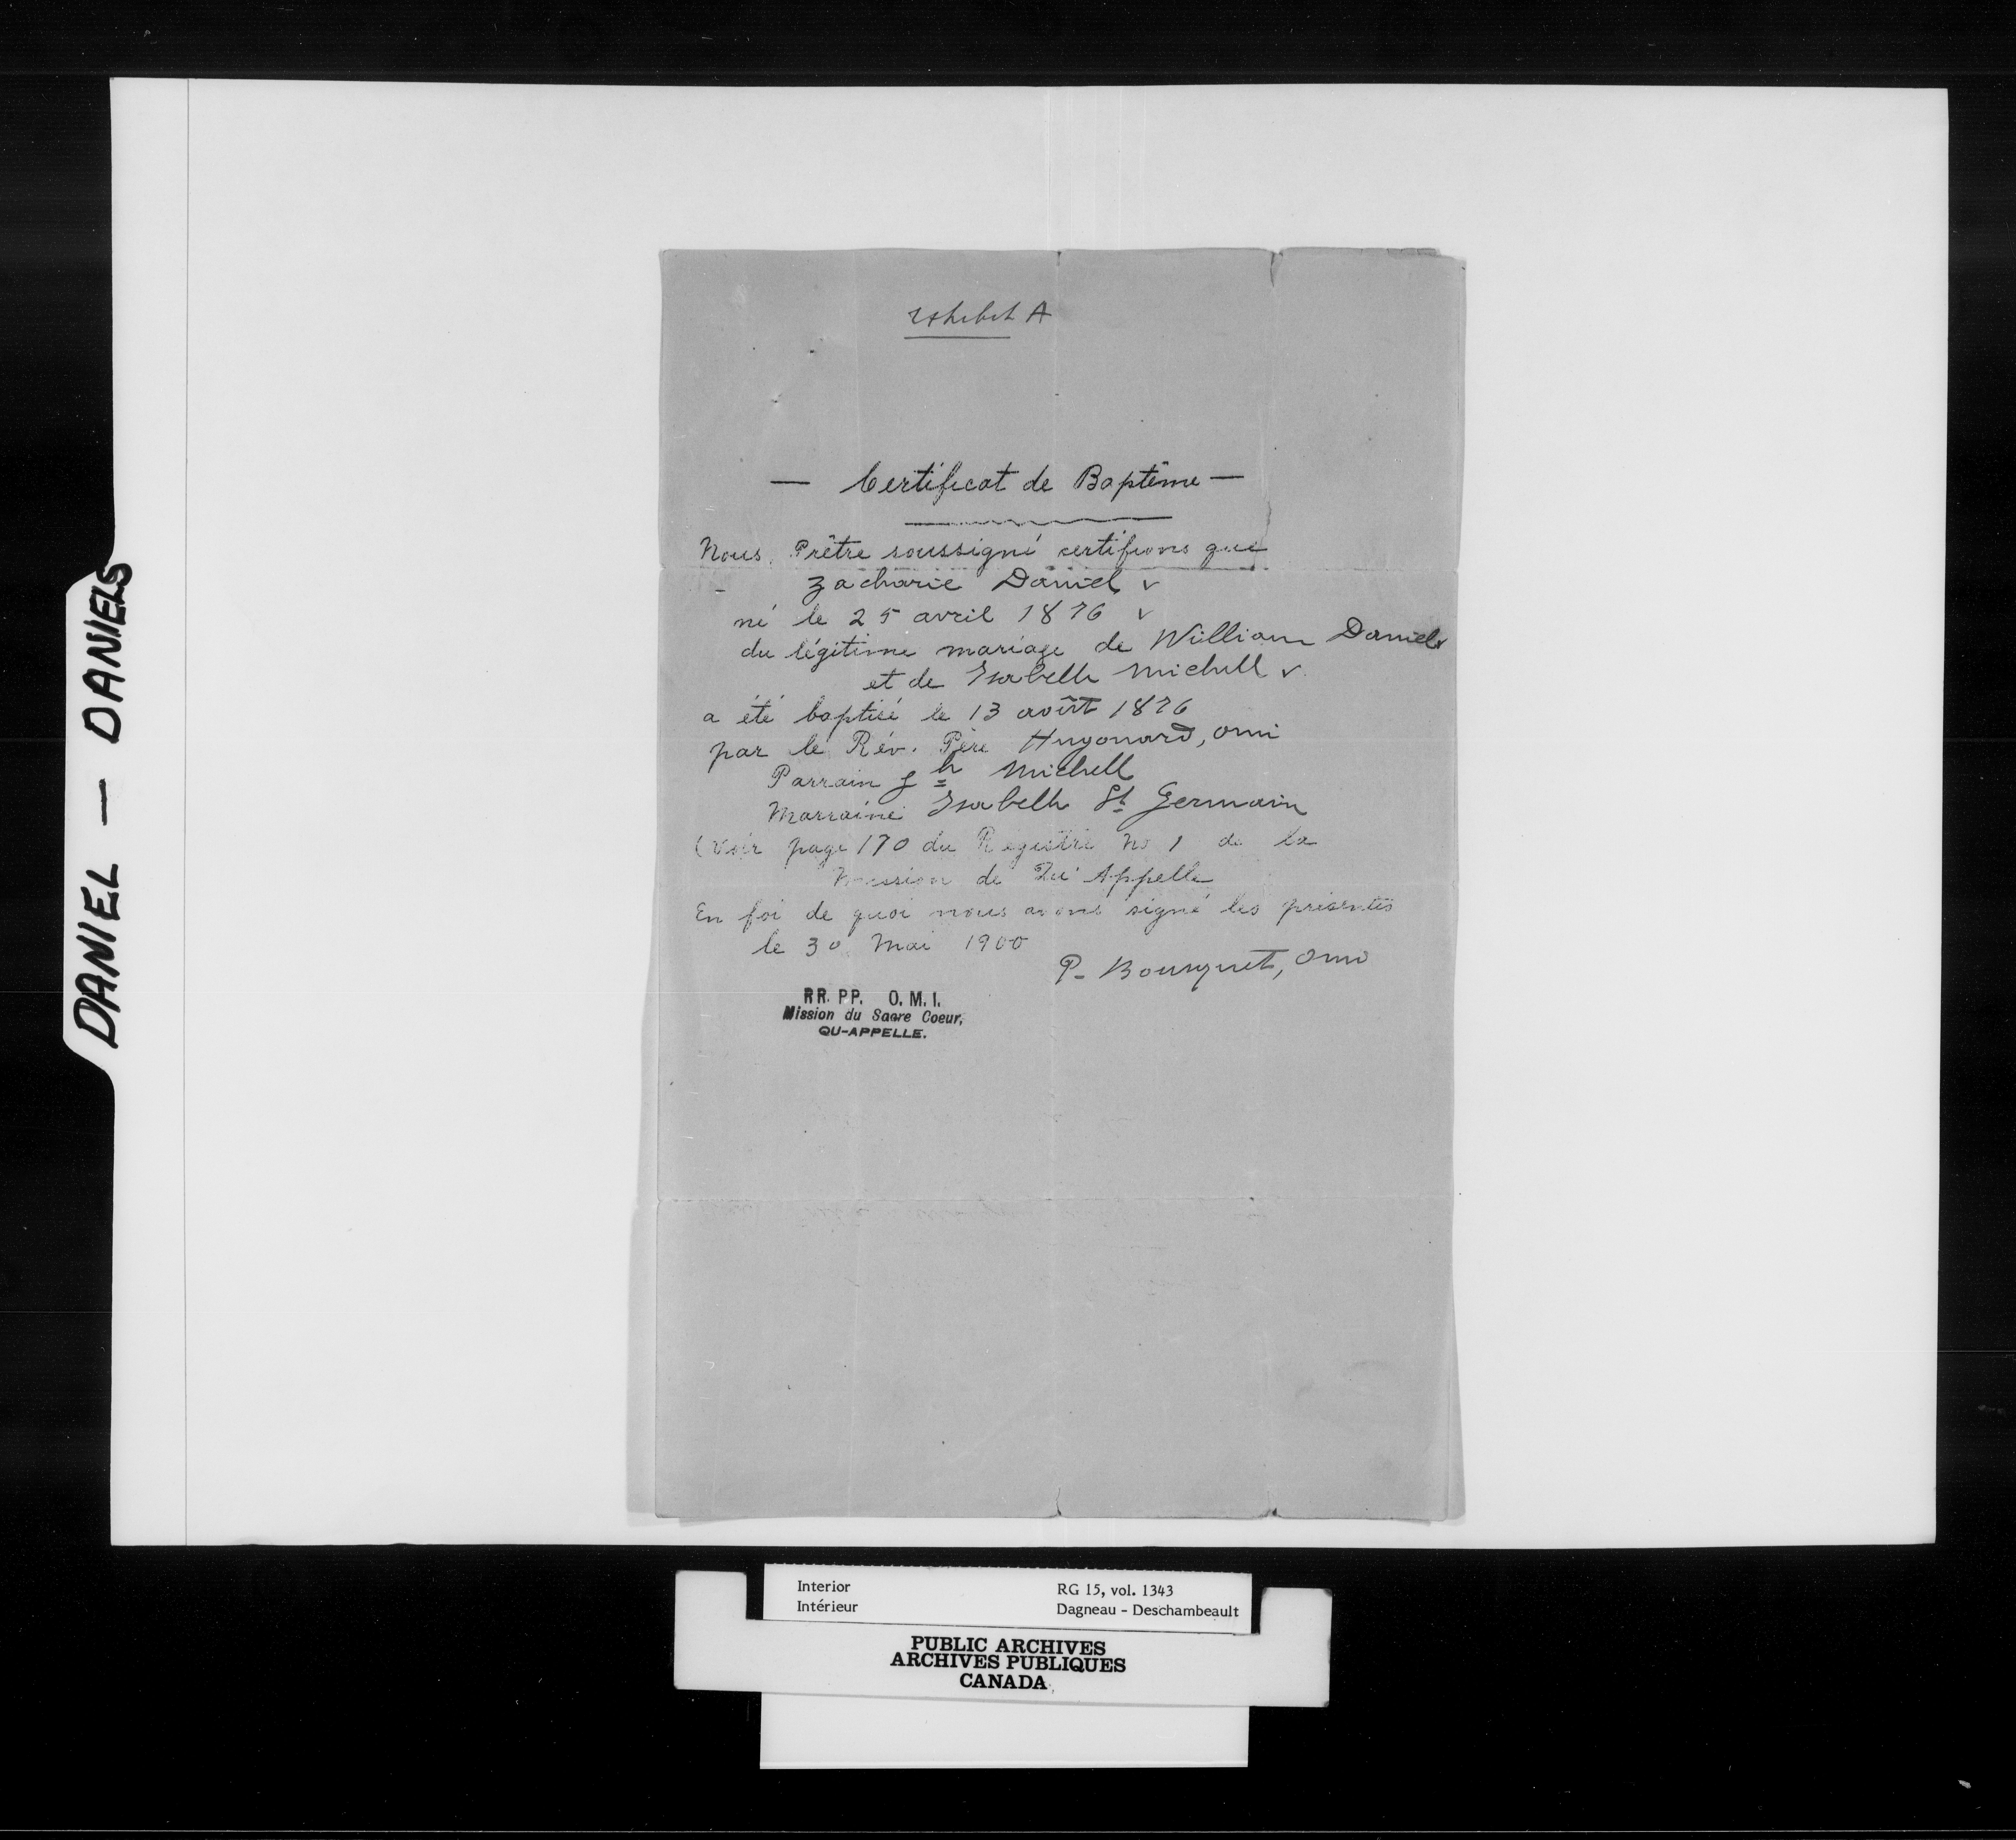 DANIEL — DANIELS
Exhibit A
— Certificat de Baptême —
Nous, Prêtre soussigné certifions que
Zacharie Daniel v
né le 25 avril 1876 v
du légitime mariage de William Daniel v
et de Isabelle Michell v
a été baptisé le 13 août 1876
par le Rév. Père Hugonard, omi
Parrain Jh Michell
Marraine Isabelle St Germain
(voir page 170 du Registre No 1 de la
Mission de Qu'Appelle
En foi de quoi nous avons signé les présentes
le 30 Mai 1900
P. Bousquet, omi
RR. PP. O. M. I.
Mission du Sacre Coeur,
QU-APPELLE.
Interior RG 15, vol. 1343
Intérieur Dagneau - Deschambeault
PUBLIC ARCHIVES
ARCHIVES PUBLIQUES
CANADA